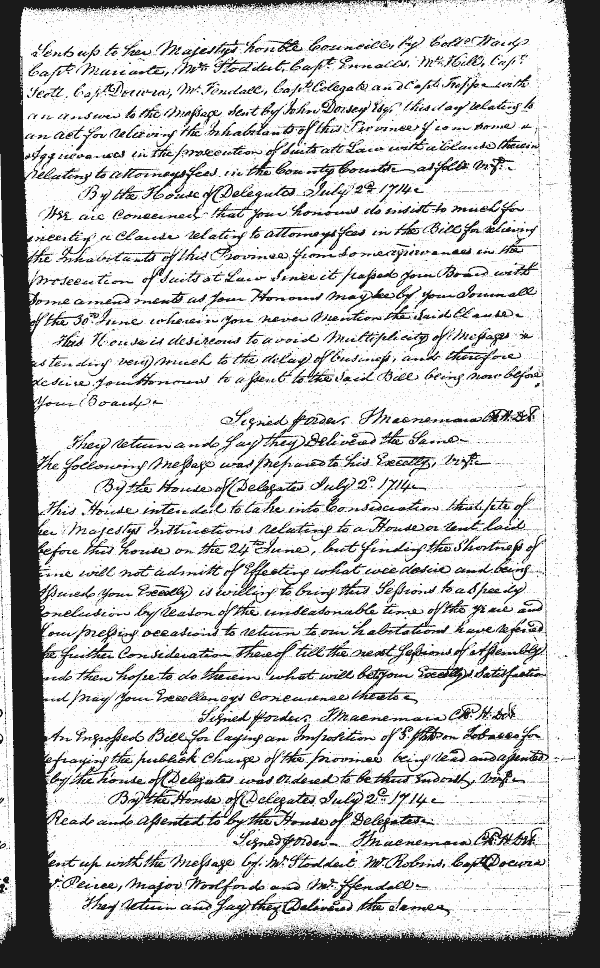 Sent up to her Majestys honble Councill by Collo Ward
Capt. Muriarte, Mr Stoddert, Capt. Ennalls, Mr Hill, Capt
Scott, Capt Docwra, Mr Tendall, Capt. Colegate and Capt. Trippe with
an answer to the Message sent by John Dorsey Esqr this day relating to
an act for relieving the Inhabitants of this Province from some
aggrievances in the prosecution of Suits att Law with a Clause therein
relating to attorneys fees in the County Courts as folls vizt.
By the House of Delegates July 2d. 1714
Wee are concerned that your honours do insist so much for
inserting a Clause relating to attorneys fees in the Bill for relieving
the Inhabitants of this Province from some agrievances in the
prosecution of Suits at Law since it passed your Board with
some amendments as your Honours may see by your Journall
of the 30th June wherein you never Mention the said Clause
This House is desireous to avoid Multiplicity of Messages
as tending very much to the delay of business, and therefore
desire your Honours to assent to the said Bill being now before
your Board
Signed p order. TMacnemara Cl. H. Del
They return and Say they Delivered the Same
The following Message was prepared to his Excelly, vizt
By the House of Delegates July 2d. 1714
This House intended to take into Consideration that pte of
her Majestys Instructions relating to a House or rent laid
before this house on the 24th June, but finding the Shortness of
time will not admitt of Effecting what wee desire and being
assured your Excelly is willing to bring this Sessions to a speedy
Conclusion by reason of the unseasonable time of the year and
our pressing occasions to return to our habitations have referred
the further Consideration thereof till the next Sessions of assembly
and then hope to do therein what will be to your Excellys Satisfaction
and pray your Excellencys Concurrence thereto
Signed p order. TMacnemara Cl. H. Del
An Engrossed Bill for laying an Imposition of on Tobacco for
defraying the publick Charge of the province being read and assented
by the house of Delegates was Ordered to be thus Endorst, vizt
By the House of Delegates July 2d. 1714
Read and assented to by the House of Delegates
Signed p order TMacnemara Cl. H. Del
Sent up with the Message by Mr Stoddert Mr Robins, Capt Docwra
Mr Peirce, Major Woolford and Mr ffendall
They return and Say they Delivered the Same